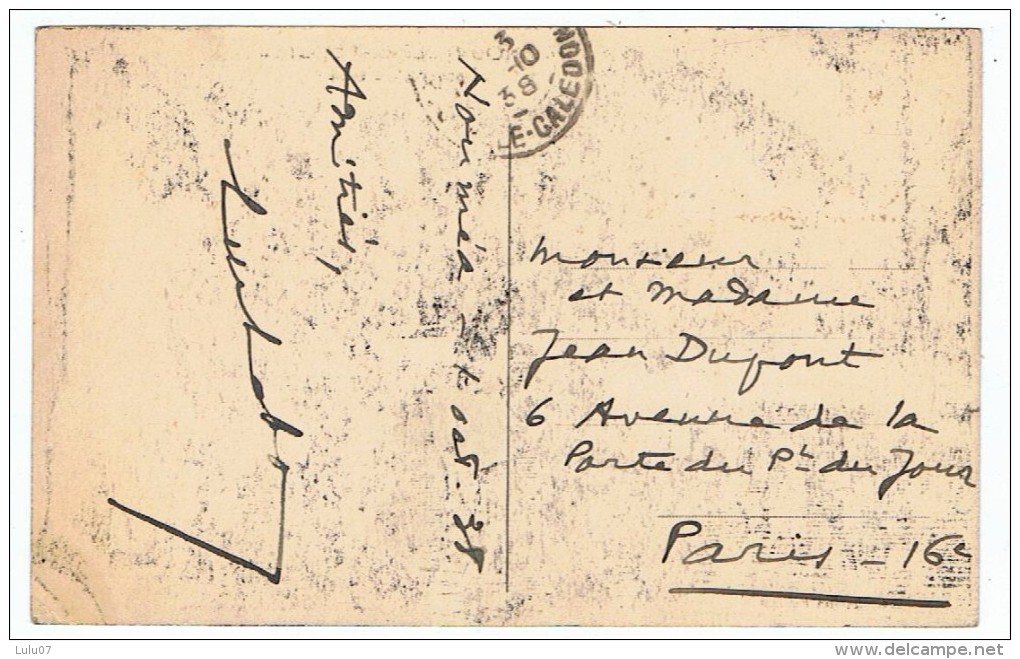 Nouméa oct. 38
Amitiés,
5-10
38
E-CALEDON
Monsieur
et Madame
Jean Dupont
6 Avenue de la
Porte du Pt du Jour
Paris - 16e
Lulu07
www.delcampe.net